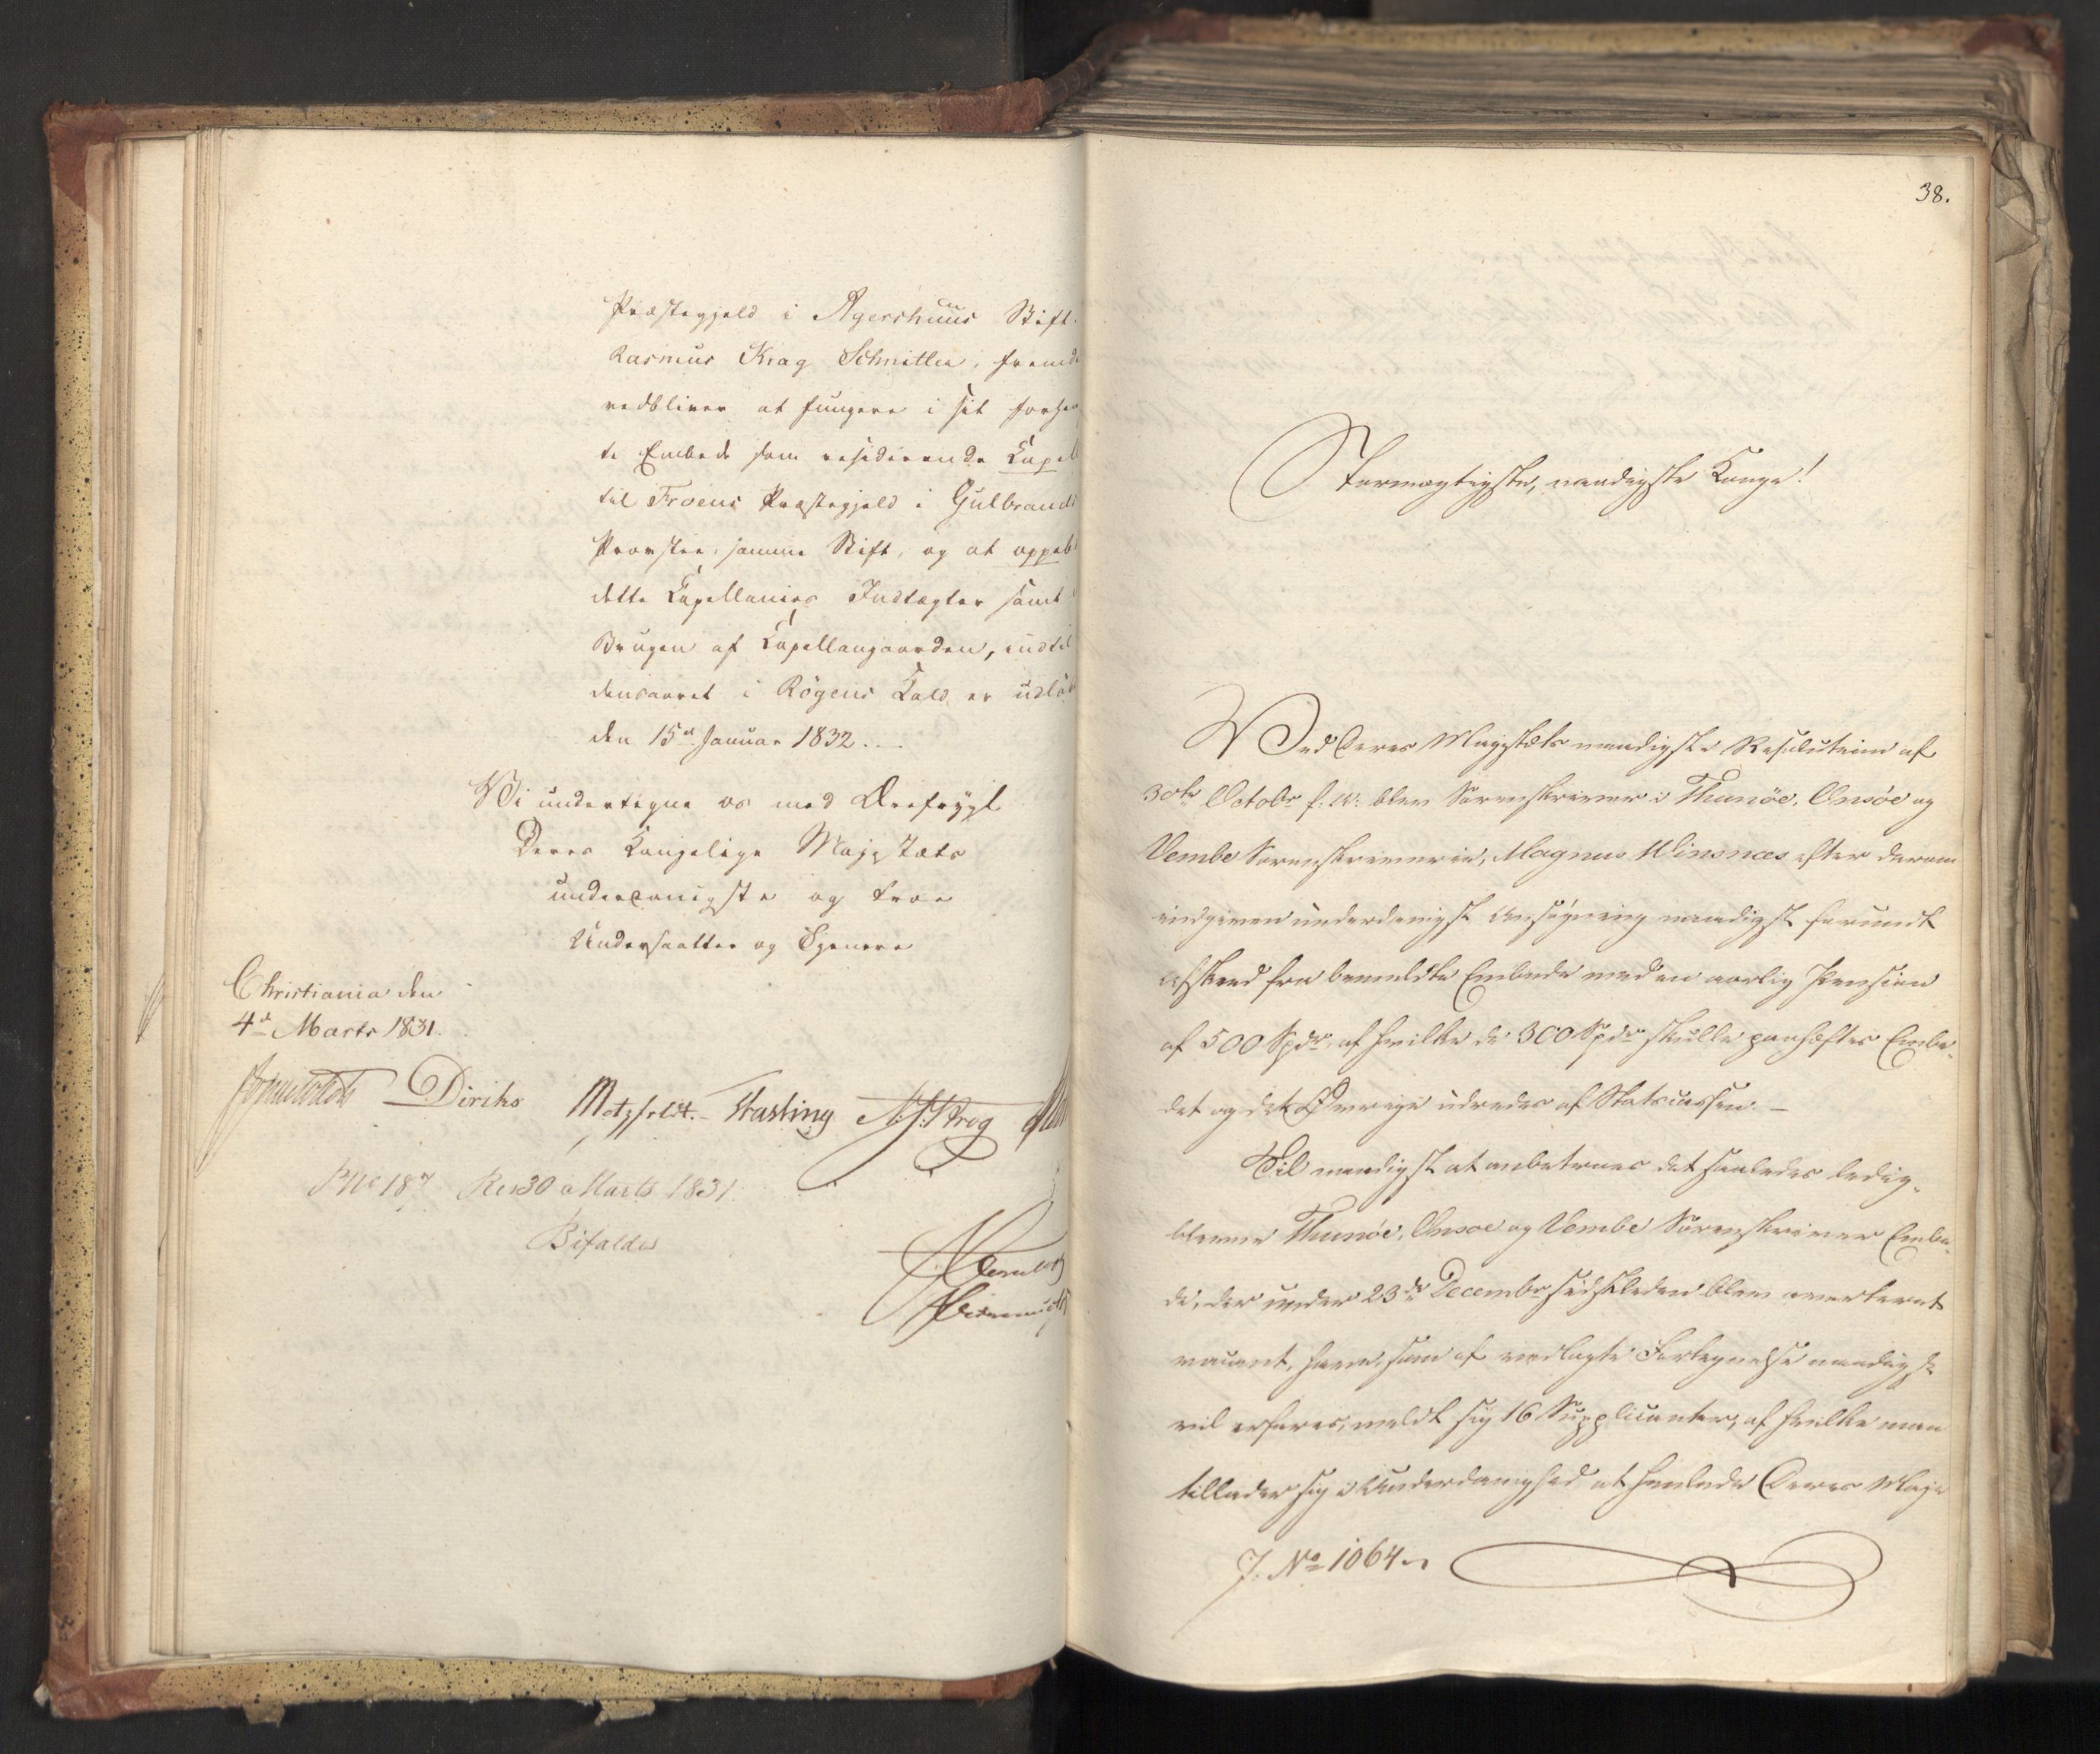 Præstegjeld i Agershuus Stift
Rasmus Krag Schnitler, fremde
vedbliver at fungere i sit forhen
te Embede som residerende Capell
til Froens Præstegjeld i Gulbrands
Provstie, samme Stift, og at oppeb
dette Capellanies Indtægter samt
Brugen af Capellangaarden, indtil
densaaret i Røgens Kald er udløb
den 15d Januar 1832.
Vi undertegne os med Ærefrygt
Deres Kongelige Majestæts
underdanigste og troe
Undersaatter og Tjenere
Christiania den
4d Marts 1831.
Diriks Motzfeldt. Fasting Krog
187 Res 30 Marts 1831.
Bifaldes
38.
Stormægtigste, naadigste Konge!
Ved Deres Majestæts naadigste Resolution af
30te Octobr f. A. blev Sorenskriver i Thunøe, Onsøe og
Vembe Sorenskriverie, Magnus Winsnæs efter derom
indgiven underdanigst Ansøgning naadigst forundt
Afsked fra bemeldte Embede med en aarlig Pension
af 500 Spdr, af hvilke de 300 Spdr skulle paahæftes Embe-
det og det Øvrige udredes af Statscassen. –
Til naadigst at anbetroes det saaledes ledig-
blevne Thunøe, Onsøe og Vembe Sorenskriver Embe-
de, der under 23de Decembr sidstleden blev averteret
vacant, have, som af vedlagte Fortegnelse naadigst
vil erfares, meldt sig 16 Supplicanter, af hvilke man
tillader sig i Underdanighed at henlede Deres Maje
J. No 1064